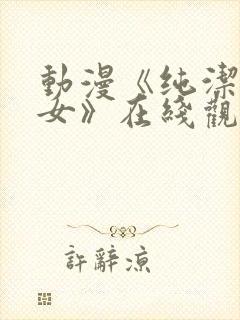 動漫《纯潔
女》在綫觀
許辭凉